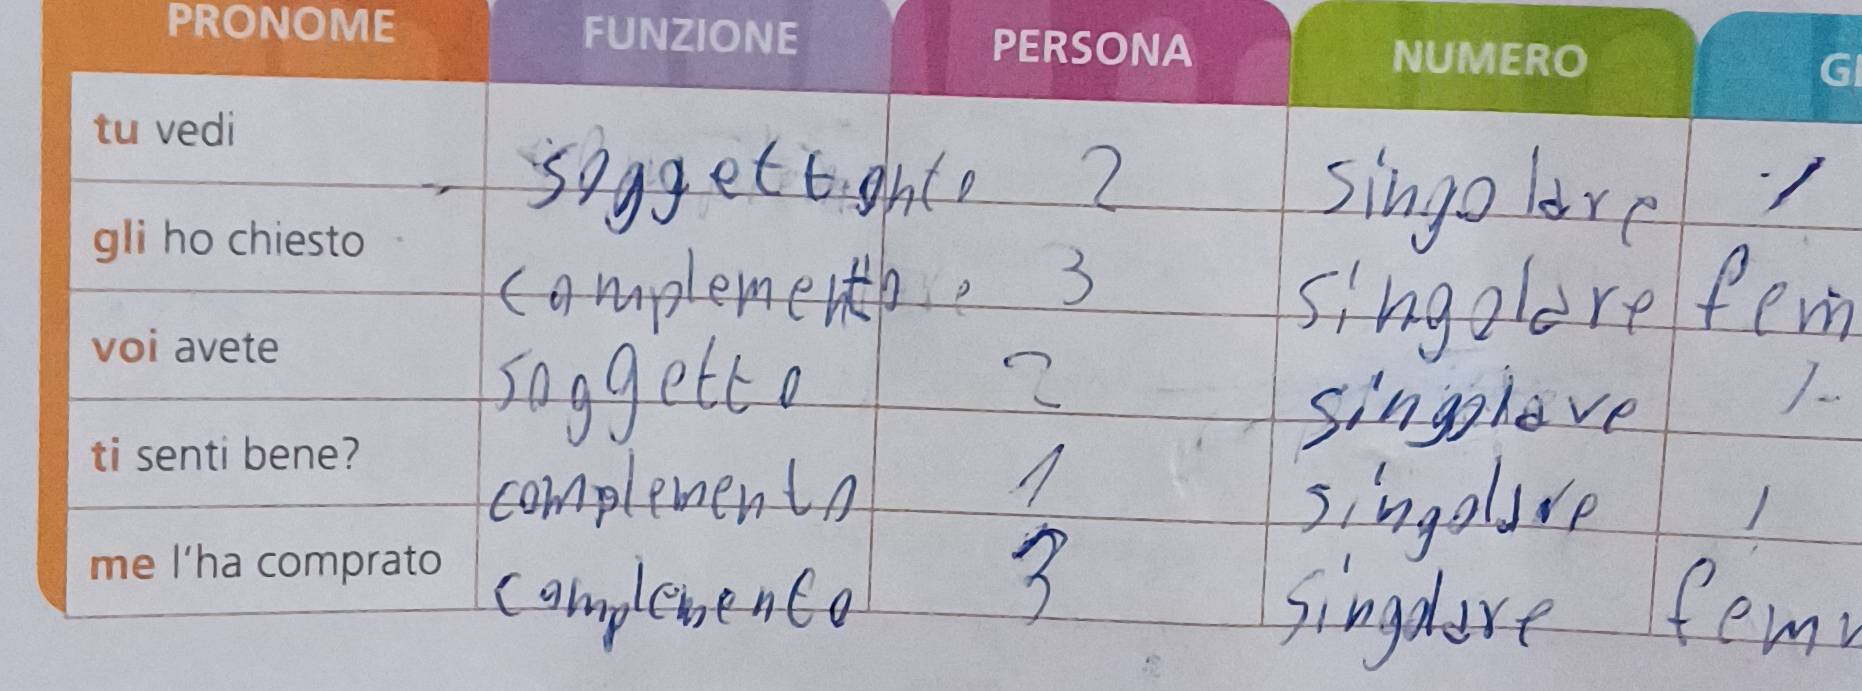 PRONOME FUNZIONE PERSONA NUMERO
tu vedi 2 singolare /
gli ho chiesto complemento 3 singolare fem
voi avete soggetto 2 singolare /-
ti senti bene? complemento 1 singolare /
me l'ha comprato complemento 3 singolare fem